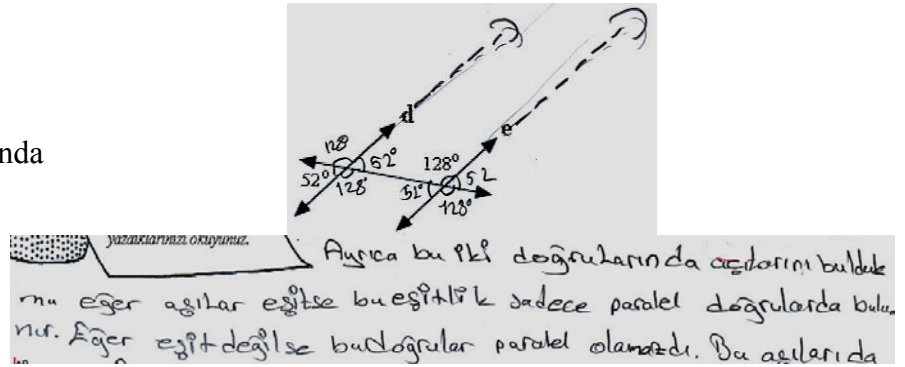 nda
d
e
128
52°
52°
128°
128°
51°
52
128°
yazdıklarınızı okuyunuz.
Ayrıca bu iki doğrularında açılarını bulduk
mu eğer açılar eşitse bu eşitlik sadece paralel doğrularda bulu-
nur. Eğer eşit değilse bu doğrular paralel olamazdı. Bu açıları da